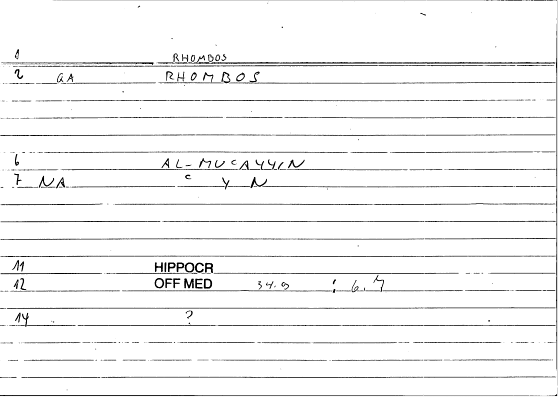 1 RHOMBOS
2 GA RHOMBOS
6 AL-MUCAYYIN
7 NA C Y N
11 HIPPOCR
12 OFF MED 34.9 : 6.7
14 ?